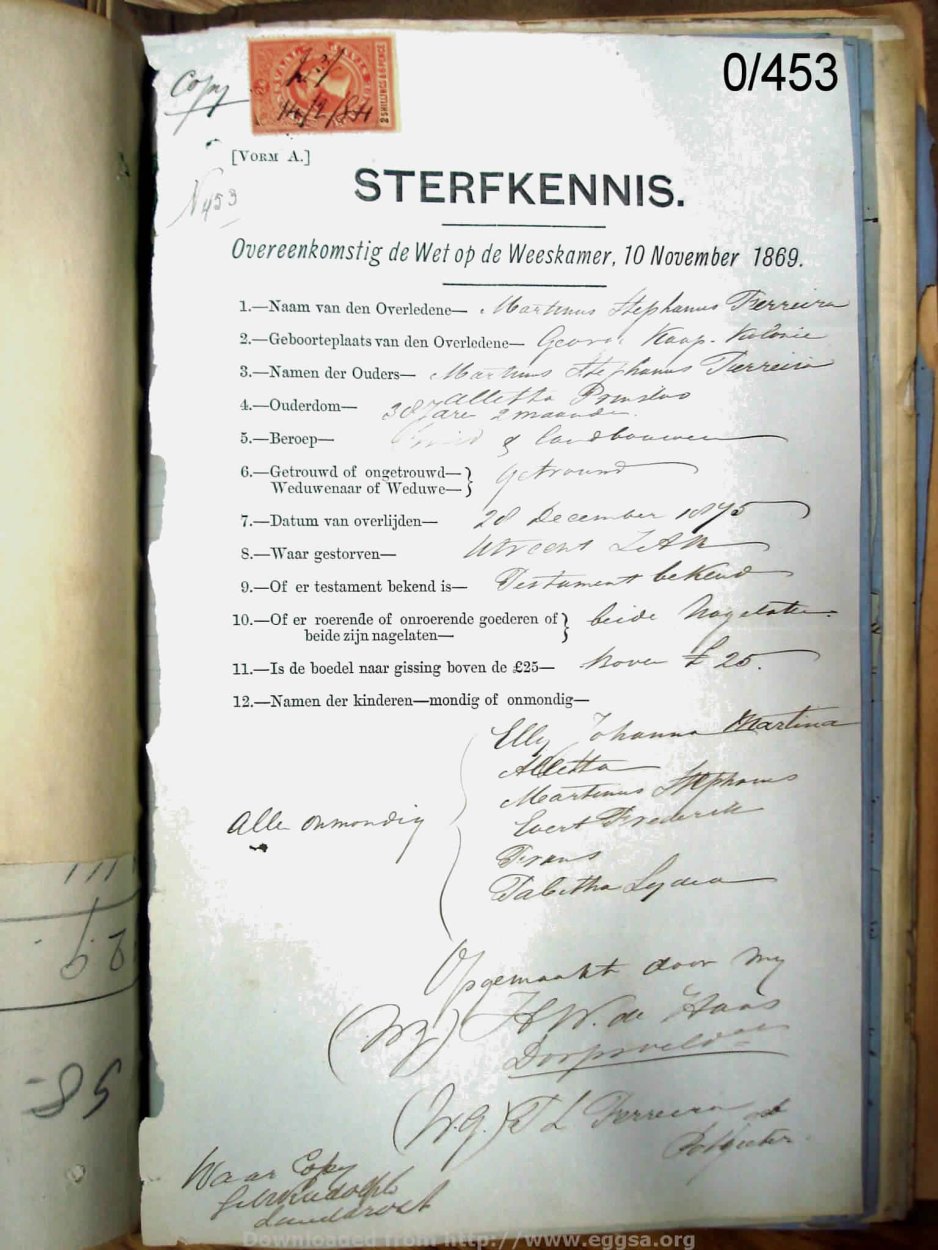 0/453
Copy
2 SHILLINGS & 6 PENCE
[VORM A.]
N 453
STERFKENNIS.
Overeenkomstig de Wet op de Weeskamer, 10 November 1869.
1.—Naam van den Overledene— Martinus Stephanus Ferreira
2.—Geboorteplaats van den Overledene— George Kaap-Kolonie
3.—Namen der Ouders— Martinus Stephanus Ferreira
Alletta
4.—Ouderdom— 38 Jare 2 maanden.
5.—Beroep— & Landbouwer
6.—Getrouwd of ongetrouwd— } getrouwd
Weduwenaar of Weduwe— }
7.—Datum van overlijden— 28 December 1875
8.—Waar gestorven— Utrecht Z.A.R.
9.—Of er testament bekend is— Testament bekend
10.—Of er roerende of onroerende goederen of } beide Nagelaten.
beide zijn nagelaten— }
11.—Is de boedel naar gissing boven de £25— Boven £ 25.
12.—Namen der kinderen—mondig of onmondig—
Elly Johanna Martina
Alletta
Martinus Stephanus
Evert Frederik
Alle onmondig
Frans
Tabitha Lydia
Opgemaakt door my
(Wg) H W. de Haas
(W.g.) Ferreira
Potgieter
Waar Copy
Landdrost
111
58-
Downloaded from http://www.eggsa.org